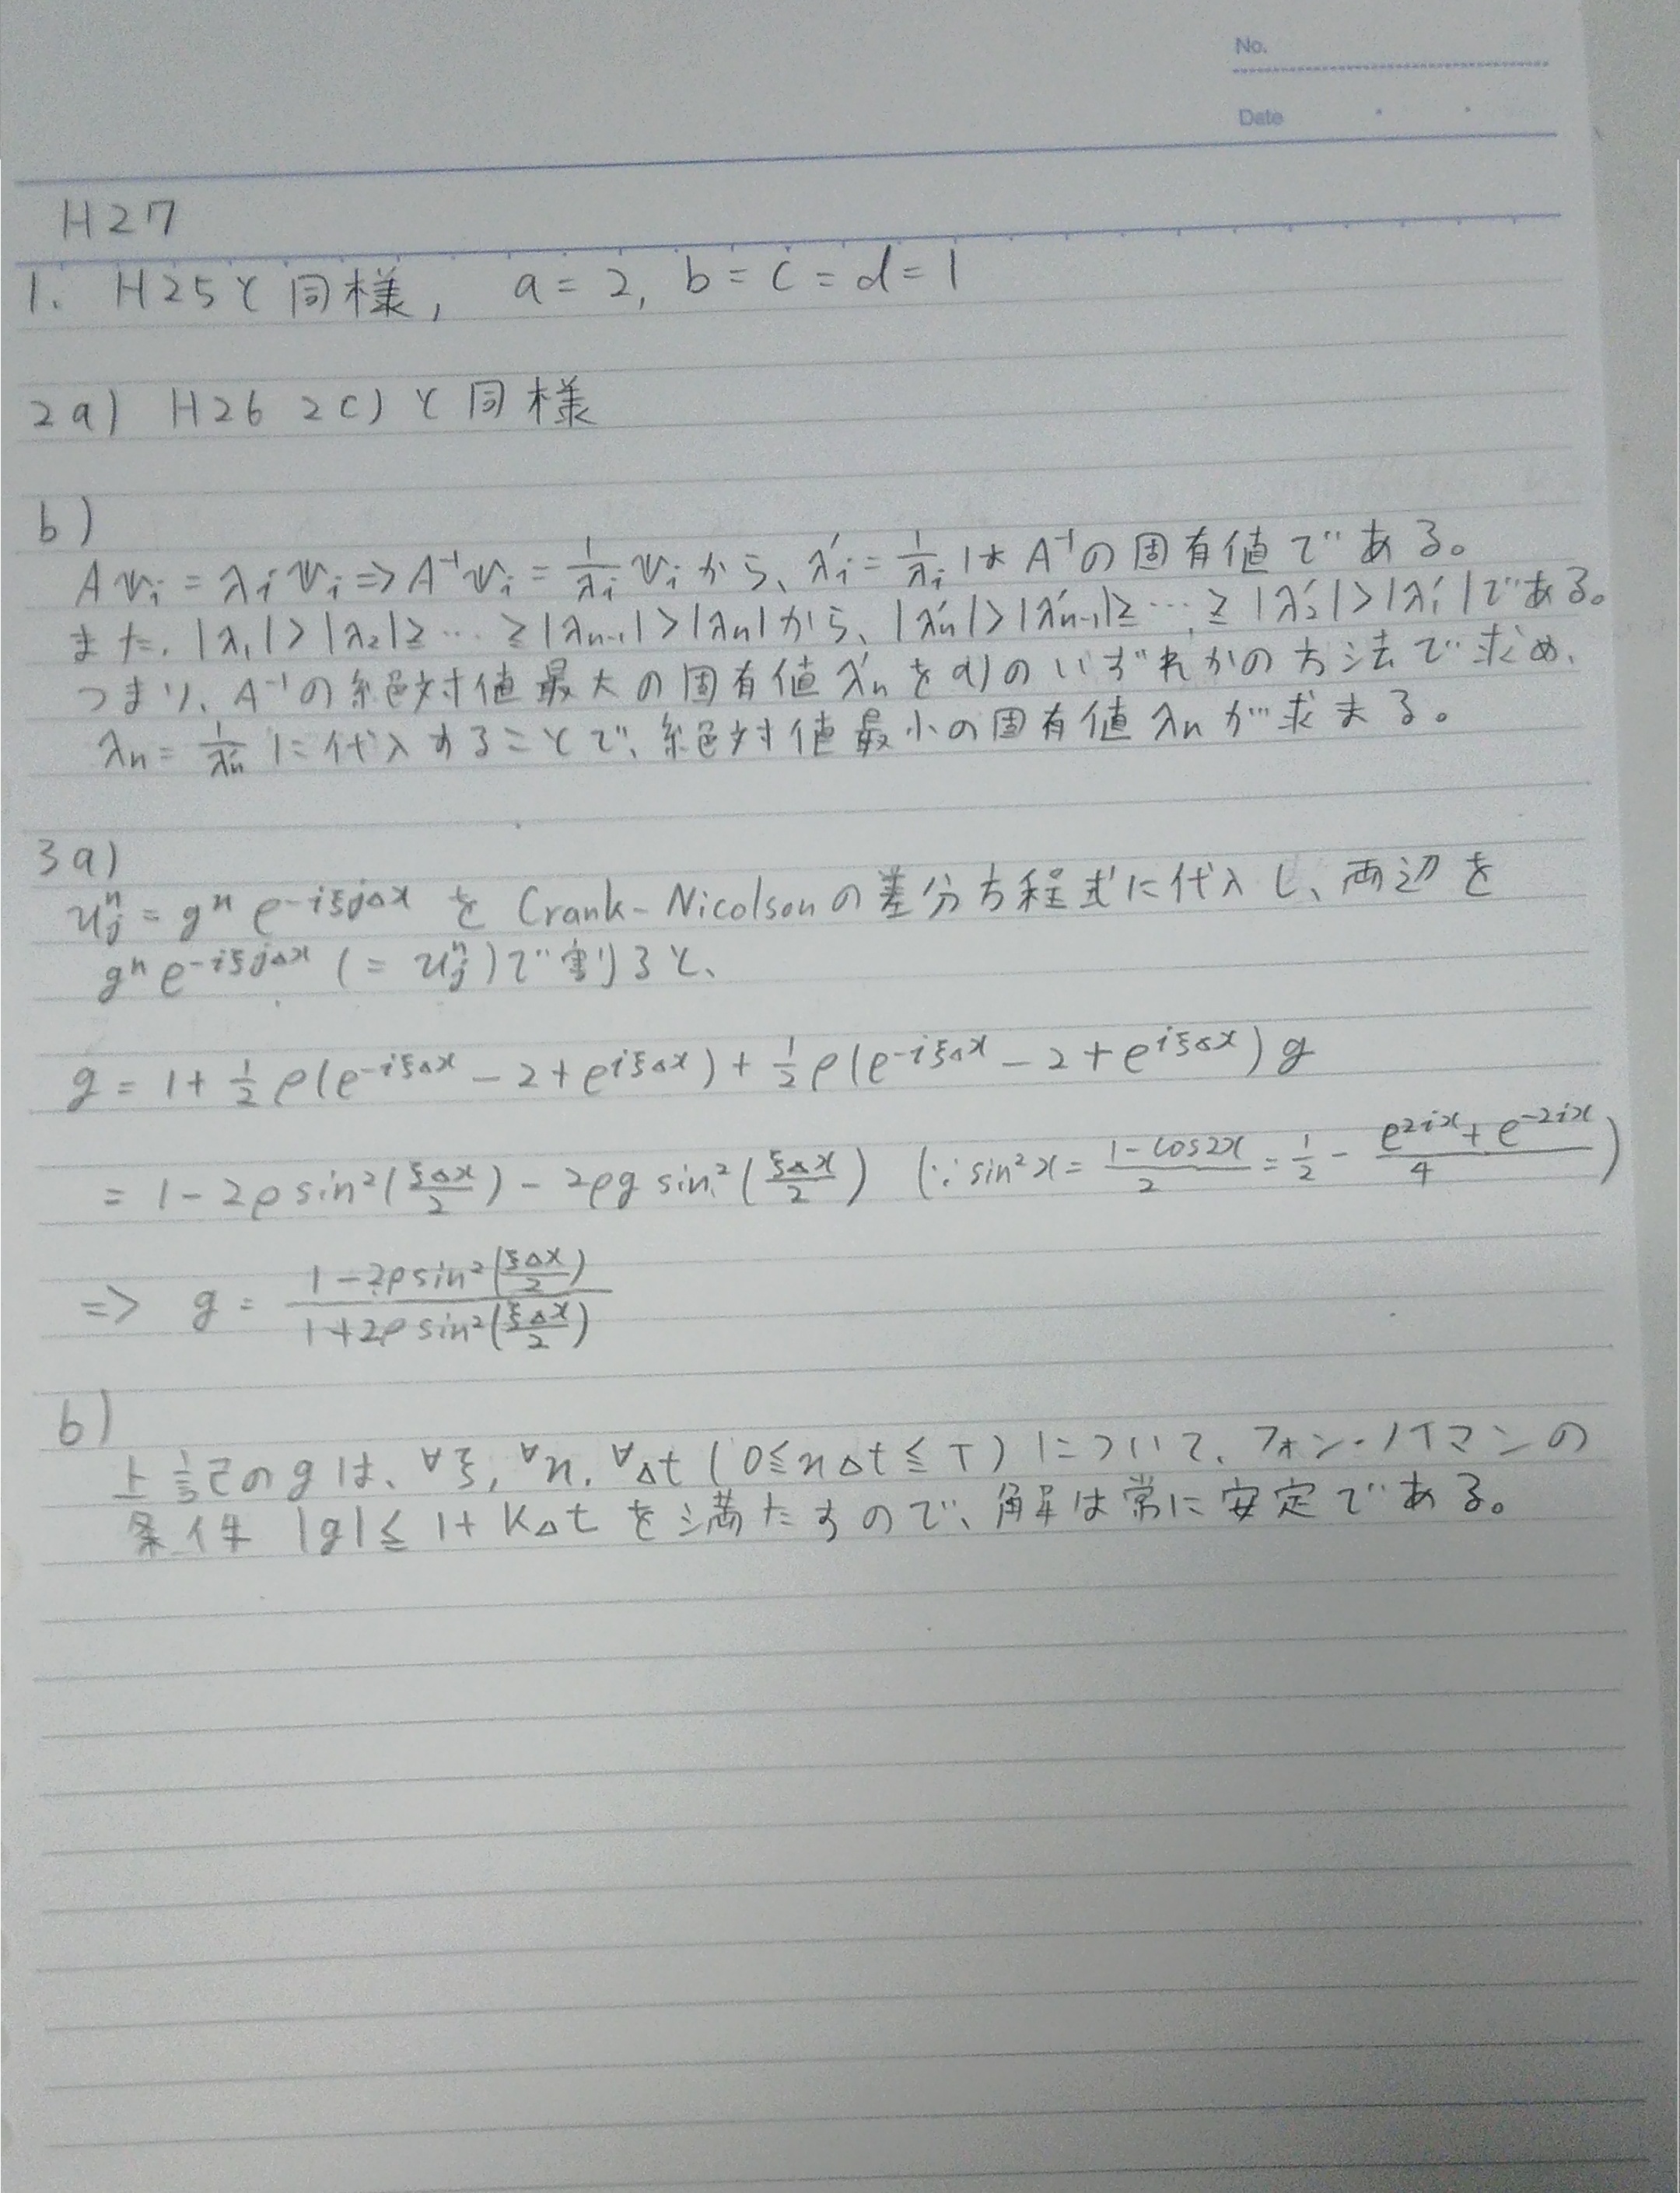 No.
Date
H27
1. H25と同様, a = 2, b = c = d = 1
2a) H26 2c)と同様
b)
A𝕧ᵢ = λᵢ𝕧ᵢ ⇒ A⁻¹𝕧ᵢ = 1/λᵢ 𝕧ᵢ から、λ'ᵢ = 1/λᵢ は A⁻¹の固有値である。
また、|λ₁| > |λ₂| ≧ … ≧ |λₙ₋₁| > |λₙ| から、|λ'ₙ| > |λ'ₙ₋₁| ≧ … ≧ |λ'₂| > |λ'₁| である。
つまり、A⁻¹の絶対値最大の固有値 λ'ₙ を a)のいずれかの方法で求め、
λₙ = 1/λ'ₙ に代入することで、絶対値最小の固有値 λₙ が求まる。
3a)
uⱼⁿ = gⁿ e^{-iξjΔx} を Crank-Nicolsonの差分方程式に代入し、両辺を
gⁿ e^{-iξjΔx} (= uⱼⁿ)で割ると、
g = 1 + 1/2 ρ(e^{-iξΔx} - 2 + e^{iξΔx}) + 1/2 ρ(e^{-iξΔx} - 2 + e^{iξΔx}) g
= 1 - 2ρ sin²(ξΔx/2) - 2ρg sin²(ξΔx/2) (∵ sin²x = (1 - cos2x)/2 = 1/2 - (e^{2ix} + e^{-2ix})/4)
⇒ g = (1 - 2ρ sin²(ξΔx/2)) / (1 + 2ρ sin²(ξΔx/2))
b)
上記のgは、∀ξ, ∀n, ∀Δt (0 ≦ nΔt ≦ T) について、フォン・ノイマンの
条件 |g| ≦ 1 + KΔt を満たすので、解は常に安定である。